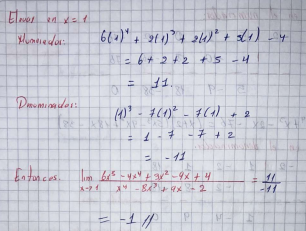 Elvaos en x = 1
Numerador: 6(1)⁴ + 2(1)³ + 2(1)² + 5(1) - 4
= 6 + 2 + 2 + 5 - 4
= 11.
Dnuminador: (1)³ - 7(1)² - 7(1) + 2
= 1 - 7 - 7 + 2
= -11
Entonces. lim x→1 6x⁵ - 4x⁴ + 9x² - 9x + 4 / x⁴ - 8x³ + 9x - 2 = 11 / -11
= -1 //